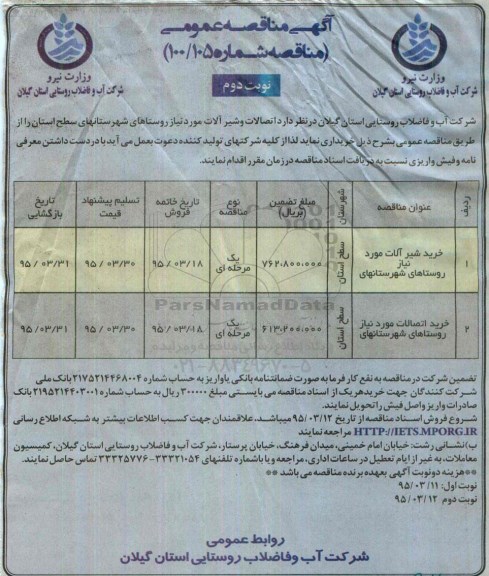 آگهی مناقصه عمومی
(مناقصه شماره ۱۰۰/۱۰۵)
نوبت دوم
وزارت نیرو
شرکت آب و فاضلاب روستایی استان گیلان
وزارت نیرو
شرکت آب و فاضلاب روستایی استان گیلان
شرکت آب و فاضلاب روستایی استان گیلان در نظر دارد اتصالات و شیر آلات مورد نیاز روستاهای شهرستانهای سطح استان را از
طریق مناقصه عمومی بشرح ذیل خریداری نماید لذا از کلیه شرکتهای تولید کننده دعوت بعمل می آید با در دست داشتن معرفی
نامه و فیش واریزی نسبت به دریافت اسناد مناقصه در زمان مقرر اقدام نمایند.
ردیف عنوان مناقصه شهرستان مبلغ تضمین (ریال) نوع مناقصه تاریخ خاتمه فروش تسلیم پیشنهاد قیمت تاریخ بازگشایی
۱ خرید شیر آلات مورد نیاز روستاهای شهرستانهای سطح استان ۷۶۲،۸۰۰،۰۰۰ یک مرحله ای ۹۵ / ۰۳/۱۸ ۹۵ / ۰۳/۳۰ ۹۵ / ۰۳/۳۱
۲ خرید اتصالات مورد نیاز روستاهای شهرستانهای سطح استان ۶۱۳،۲۰۰،۰۰۰ یک مرحله ای ۹۵/۰۳/۱۸ ۹۵ / ۰۳/۳۰ ۹۵/۰۳/۳۱
ParsNamadData
۰۲۱-۸۸۳۴۹۶۷۰-۵
تضمین شرکت در مناقصه به نفع کارفرما به صورت ضمانتنامه بانکی یا واریز به حساب شماره ۲۱۷۵۲۱۴۴۶۸۰۰۴ بانک ملی
شرکت کنندگان جهت خرید هریک از اسناد مناقصه می بایستی مبلغ ۳۰۰۰۰۰ ریال به حساب شماره ۲۱۹۵۲۱۴۴۰۳۰۰۱ بانک
صادرات واریز و اصل فیش را تحویل نمایند.
شروع فروش اسناد مناقصه از تاریخ ۹۵/۰۳/۱۲ میباشد، علاقمندان جهت کسب اطلاعات بیشتر به شبکه اطلاع رسانی
HTTP://IETS.MPORG.IR مراجعه نمایند
ب) نشانی رشت: خیابان امام خمینی، میدان فرهنگ، خیابان پرستار، شرکت آب و فاضلاب روستایی استان گیلان، کمیسیون
معاملات، به غیر از ایام تعطیل در ساعات اداری، مراجعه و یا با شماره تلفنهای ۳۳۳۲۱۰۵۴-۳۳۳۲۵۷۷۶ تماس حاصل نمایند.
**هزینه دو نوبت آگهی بعهده برنده مناقصه می باشد **
نوبت اول: ۹۵/۰۳/۱۱
نوبت دوم ۹۵/۰۳/۱۲
روابط عمومی
شرکت آب و فاضلاب روستایی استان گیلان